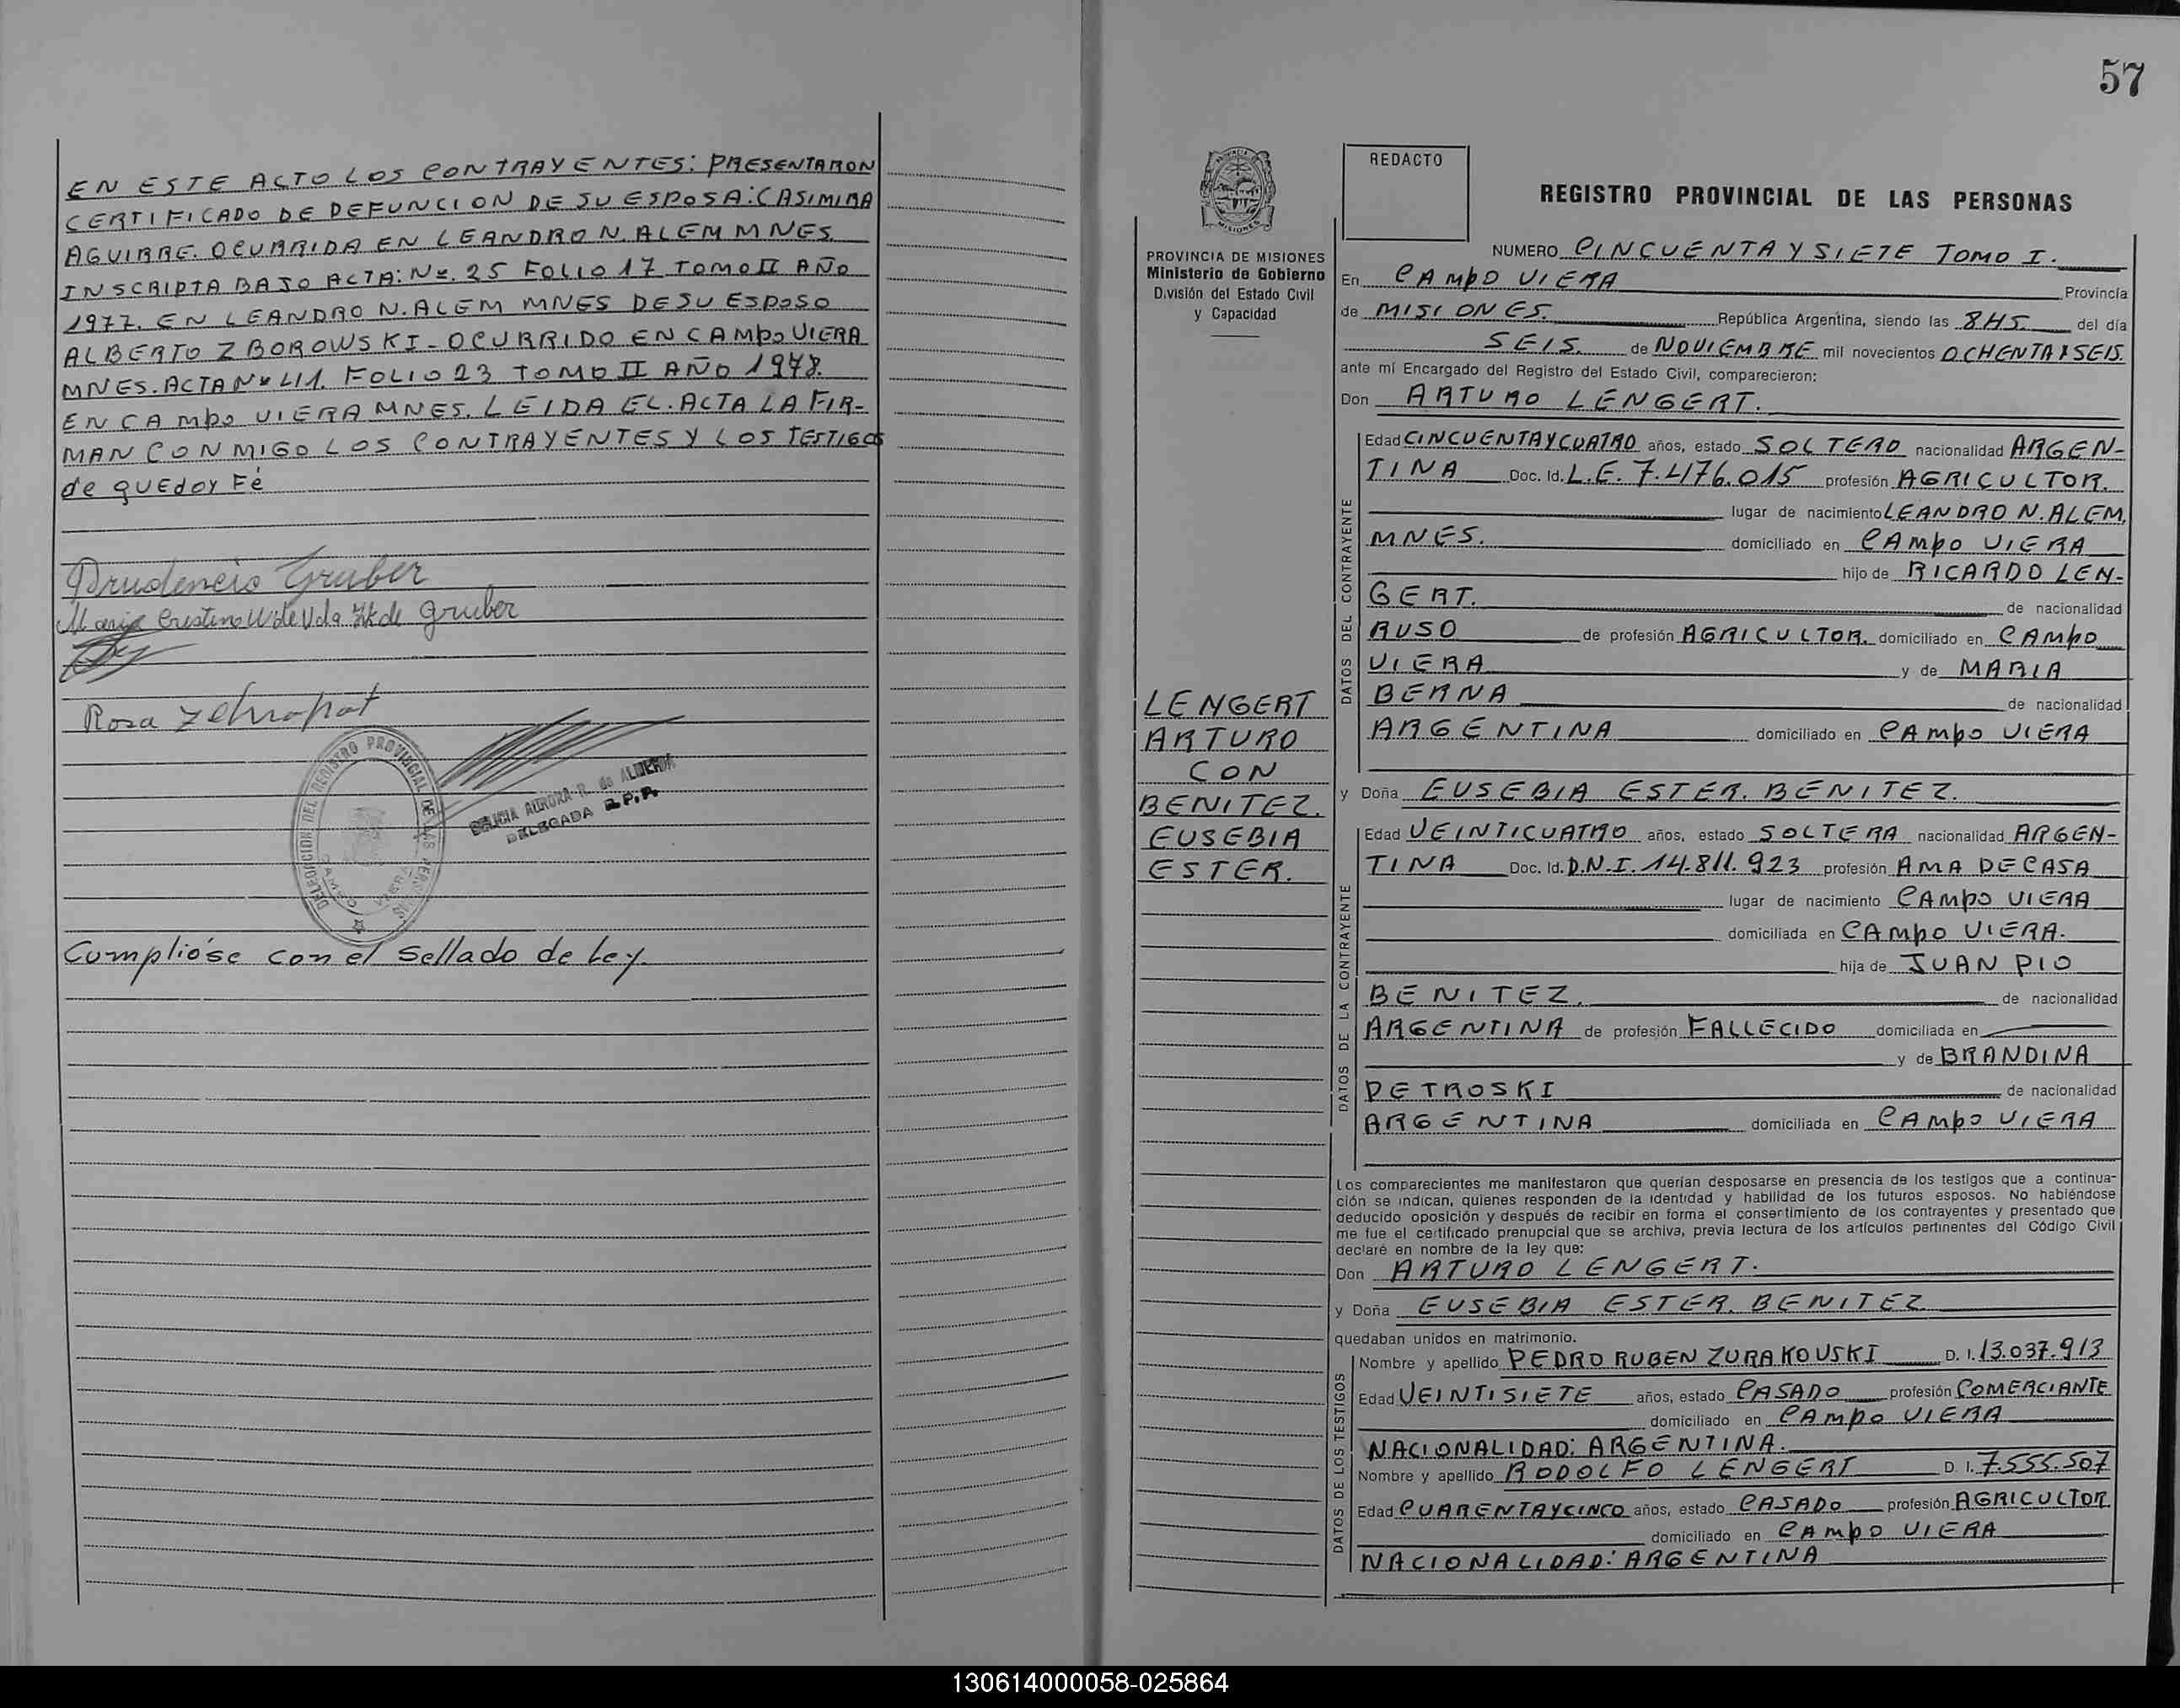 EN ESTE ACTO LOS CONTRAYENTES: PRESENTARON
CERTIFICADO DE DEFUNCION DE SU ESPOSA: CASIMIRA
AGUIRRE. OCURRIDA EN LEANDRO N. ALEM MNES.
INSCRIPTA BAJO ACTA: Nº. 25 FOLIO 17 TOMO II AÑO
1977. EN LEANDRO N. ALEM MNES DE SU ESPOSO
ALBERTO ZBOROWSKI - OCURRIDO EN CAMPO VIERA
MNES. ACTA Nº 41. FOLIO 23 TOMO II AÑO 1978.
EN CAMPO VIERA MNES. LEIDA EL. ACTA LA FIR-
MAN CONMIGO LOS CONTRAYENTES Y LOS TESTIGOS
de QUEdoy Fé
Prudencio Gruber
Maria Cristina de Vda de Gruber
Rosa
DELEGACION DEL REGISTRO PROVINCIAL DE LAS PERSONAS
CAMPO VIERA
DELICIA AURORA R. de ALMEIDA
DELEGADA R.P.P.
Cumplióse con el Sellado de Ley.
57
PROVINCIA DE MISIONES
Ministerio de Gobierno
División del Estado Civil
y Capacidad
LENGERT
ARTURO
CON
BENITEZ.
EUSEBIA
ESTER.
REDACTO
REGISTRO PROVINCIAL DE LAS PERSONAS
NUMERO CINCUENTA Y SIETE TOMO I.
En CAMPO VIERA Provincia
de MISIONES. República Argentina, siendo las 8HS. del día
SEIS. de NOVIEMBRE mil novecientos OCHENTA Y SEIS.
ante mí Encargado del Registro del Estado Civil, comparecieron:
Don ARTURO LENGERT.
DATOS DEL CONTRAYENTE
Edad CINCUENTAYCUATRO años, estado SOLTERO nacionalidad ARGEN-
TINA Doc. Id. L.E. 7.476.015 profesión AGRICULTOR.
lugar de nacimiento LEANDRO N. ALEM.
MNES. domiciliado en CAMPO VIERA
hijo de RICARDO LEN-
GERT. de nacionalidad
RUSO de profesión AGRICULTOR. domiciliado en CAMPO
VIERA y de MARIA
BERNA de nacionalidad
ARGENTINA domiciliado en CAMPO VIERA
y Doña EUSEBIA ESTER. BENITEZ.
DATOS DE LA CONTRAYENTE
Edad VEINTICUATRO años, estado SOLTERA nacionalidad ARGEN-
TINA Doc. Id. D.N.I. 14.811.923 profesión AMA DE CASA
lugar de nacimiento CAMPO VIERA
domiciliada en CAMPO VIERA.
hija de JUAN PIO
BENITEZ. de nacionalidad
ARGENTINA de profesión FALLECIDO domiciliada en
y de BRANDINA
PETROSKI de nacionalidad
ARGENTINA domiciliada en CAMPO VIERA
Los comparecientes me manifestaron que querían desposarse en presencia de los testigos que a continua-
ción se indican, quienes responden de la identidad y habilidad de los futuros esposos. No habiéndose
deducido oposición y después de recibir en forma el consertimiento de los contrayentes y presentado que
me fue el certificado prenupcial que se archiva, previa lectura de los artículos pertinentes del Código Civil
declaré en nombre de la ley que:
Don ARTURO LENGERT.
y Doña EUSEBIA ESTER. BENITEZ
quedaban unidos en matrimonio.
DATOS DE LOS TESTIGOS
Nombre y apellido PEDRO RUBEN ZURAKOUSKI D. I. 13.037.913
Edad VEINTISIETE años, estado CASADO profesión COMERCIANTE
domiciliado en CAMPO VIERA
NACIONALIDAD: ARGENTINA.
Nombre y apellido RODOLFO LENGERT D. I. 7.555.507
Edad CUARENTAYCINCO años, estado CASADO profesión AGRICULTOR.
domiciliado en CAMPO VIERA
NACIONALIDAD: ARGENTINA
130614000058-025864